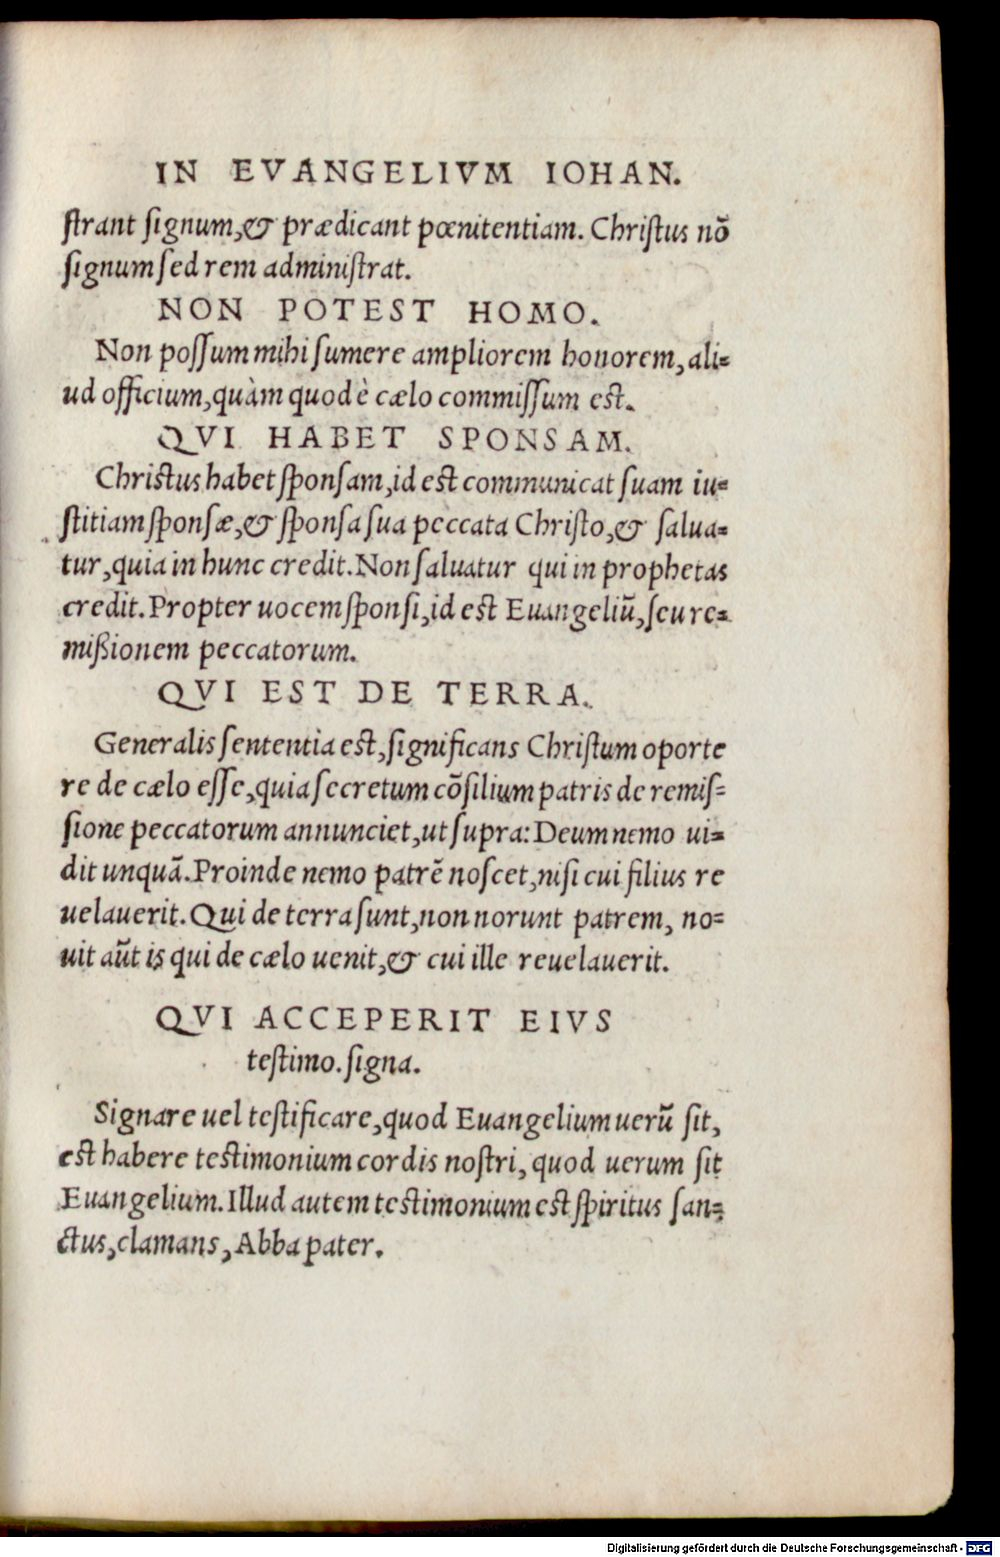 IN EVANGELIVM IOHAN.
strant signum,& prædicant pœnitentiam. Christus nõ
signum sed rem administrat.
NON POTEST HOMO.
Non possum mihi sumere ampliorem honorem, ali=
ud officium,quàm quod è cælo commissum est.
QVI HABET SPONSAM.
Christus habet sponsam,id est communicat suam iu=
stitiam sponsæ,& sponsa sua peccata Christo,& salua=
tur,quia in hunc credit.Non saluatur qui in prophetas
credit.Propter uocem sponsi,id est Euangeliũ,seu re=
mißionem peccatorum.
QVI EST DE TERRA.
Generalis sententia est,significans Christum oporte
re de cælo esse,quia secretum cõsilium patris de remis=
sione peccatorum annunciet,ut supra:Deum nemo ui=
dit unquã.Proinde nemo patrẽ noscet,nisi cui filius re
uelauerit.Qui de terra sunt,non norunt patrem, no=
uit aũt is qui de cælo uenit,& cui ille reuelauerit.
QVI ACCEPERIT EIVS
testimo.signa.
Signare uel testificare,quod Euangelium uerũ sit,
est habere testimonium cordis nostri, quod uerum sit
Euangelium.Illud autem testimonium est spiritus san=
ctus,clamans, Abba pater.
Digitalisierung gefördert durch die Deutsche Forschungsgemeinschaft - DFG